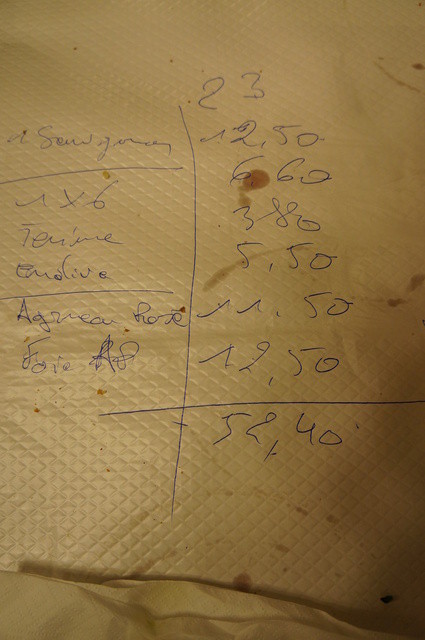 23
1 Sauvignon 12,50
1X6 6,60
Terrine 3 80
Endive 5,50
Agneau Rose 11.50
Foie 12,50
52,40